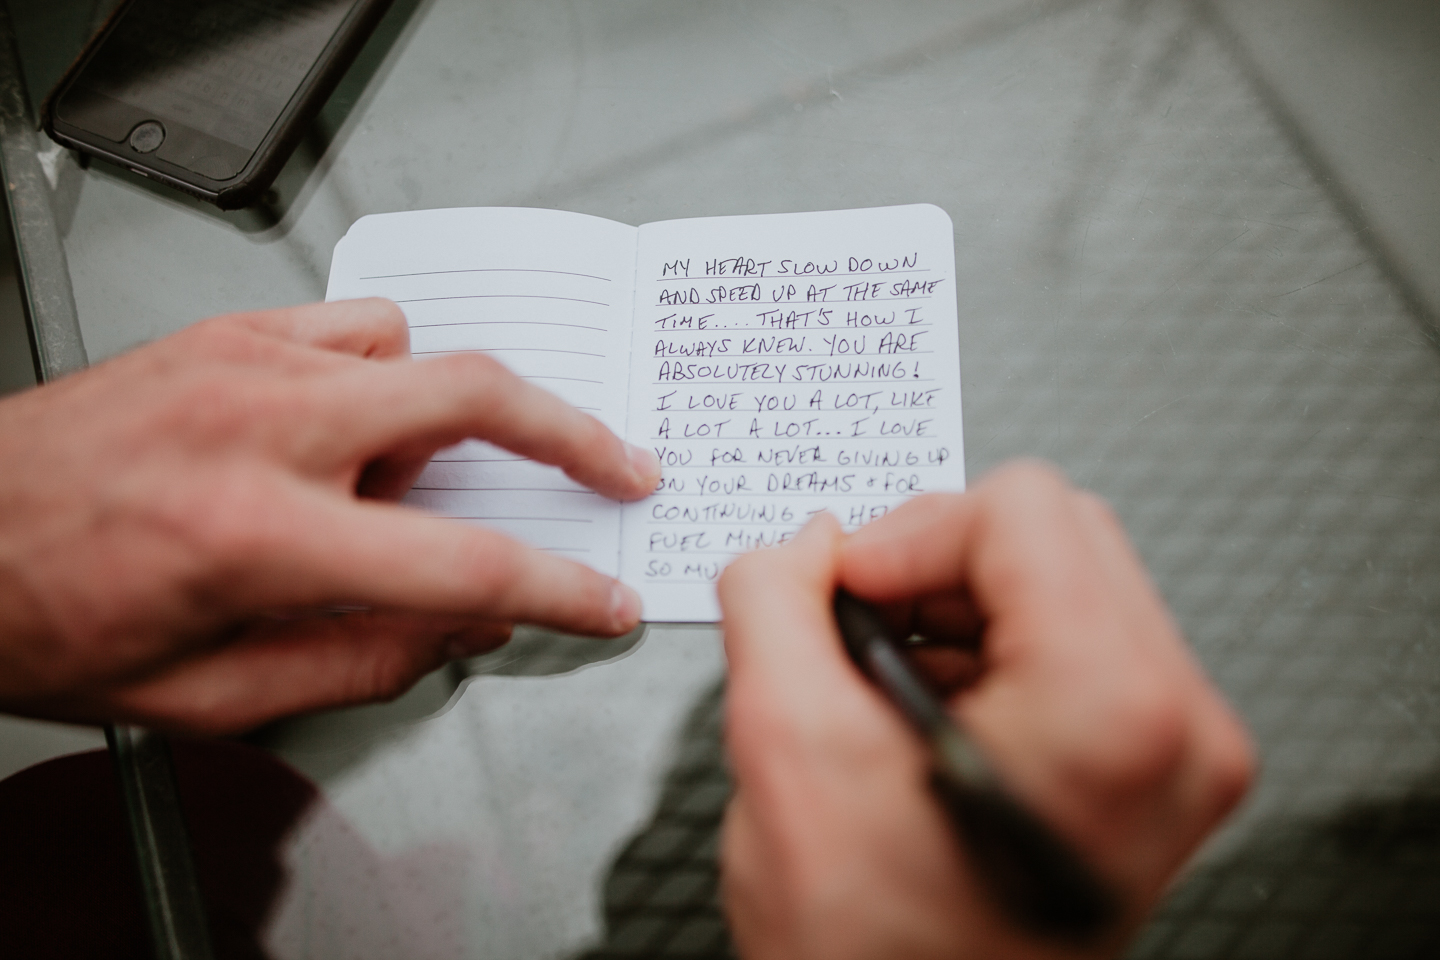 MY HEART SLOW DOWN
AND SPEED UP AT THE SAME
TIME.... THAT'S HOW I
ALWAYS KNEW. YOU ARE
ABSOLUTELY STUNNING!
I LOVE YOU A LOT, LIKE
A LOT A LOT... I LOVE
YOU FOR NEVER GIVING UP
ON YOUR DREAMS & FOR
CONTINUING
FUEL MINE
SO